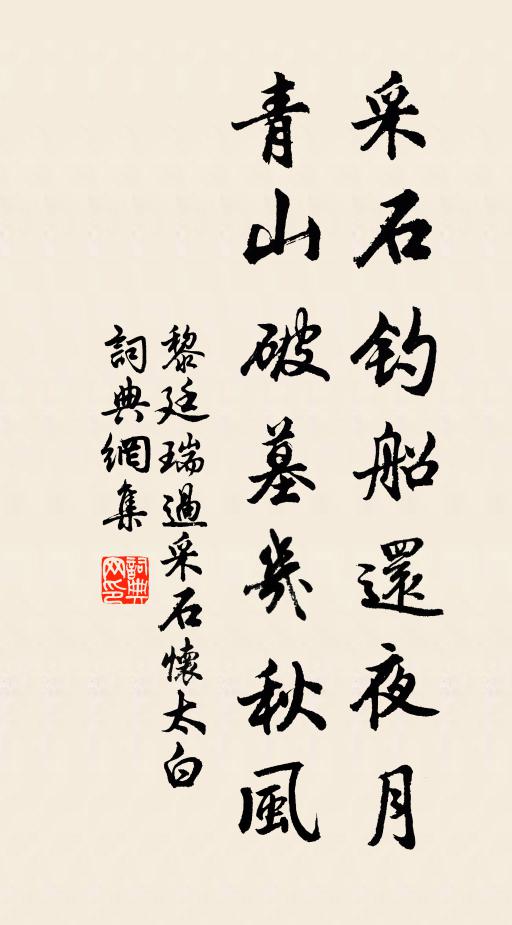 采石钓船還夜月
青山破墓幾秋風
黎廷瑞過采石懷太白
詞典網集
詞典网印